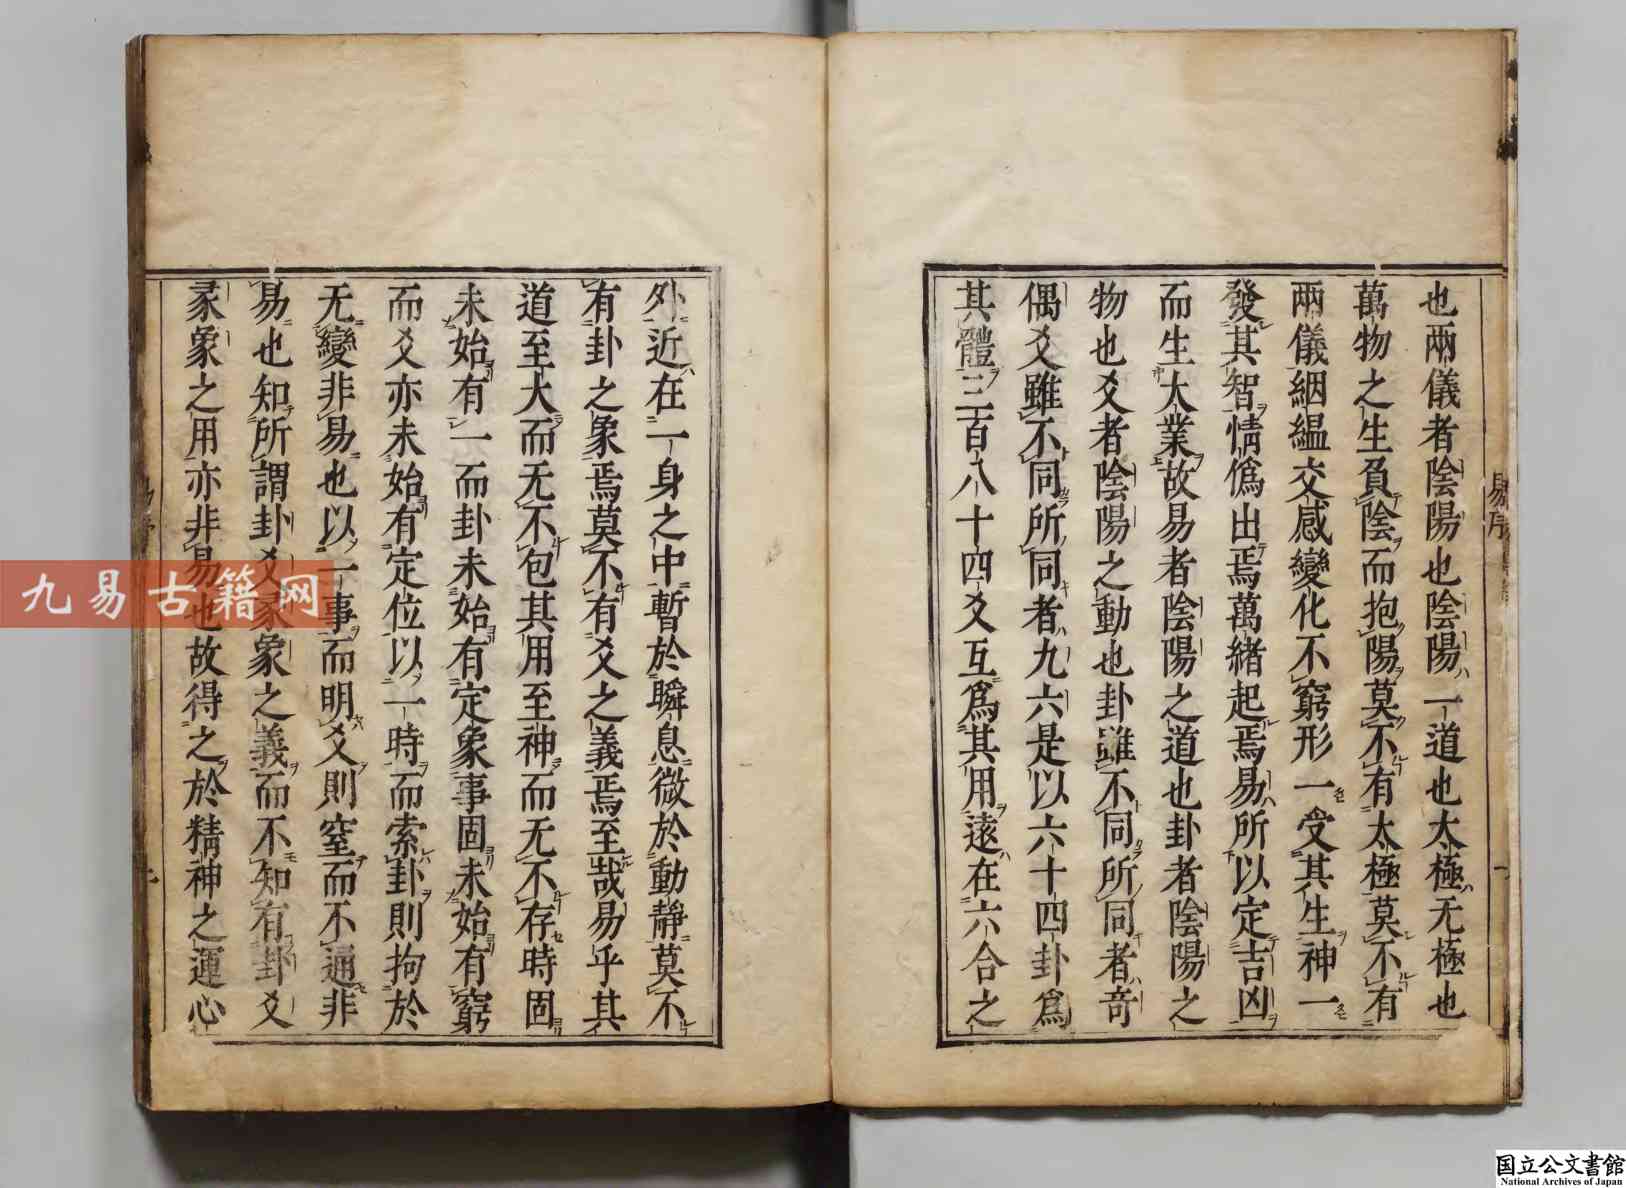 也兩儀者陰陽也陰陽一道也太極无極也
萬物之生負陰而抱陽莫不有太極莫不有
兩儀絪縕交感變化不窮形一受其生神一
發其智情僞出焉萬緒起焉易所以定吉凶
而生大業故易者陰陽之道也卦者陰陽之
物也爻者陰陽之動也卦雖不同所同者奇
偶爻雖不同所同者九六是以六十四卦爲
其體三百八十四爻互爲其用遠在六合之
外近在一身之中暫於瞬息微於動靜莫不
有卦之象焉莫不有爻之義焉至哉易乎其
道至大而无不包其用至神而无不存時固
未始有一而卦未始有定象事固未始有窮
而爻亦未始有定位以一時而索卦則拘於
无變非易也以一事而明爻則窒而不通非
易也知所謂卦爻彖象之義而不知有卦爻
彖象之用亦非易也故得之於精神之運心
易序
九易古籍网
国立公文書館
National Archives of Japan